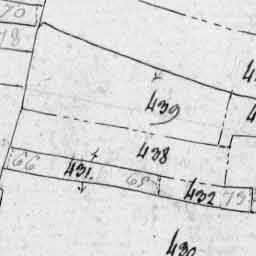 70
78
439
438
66
431.
65
432
75
430